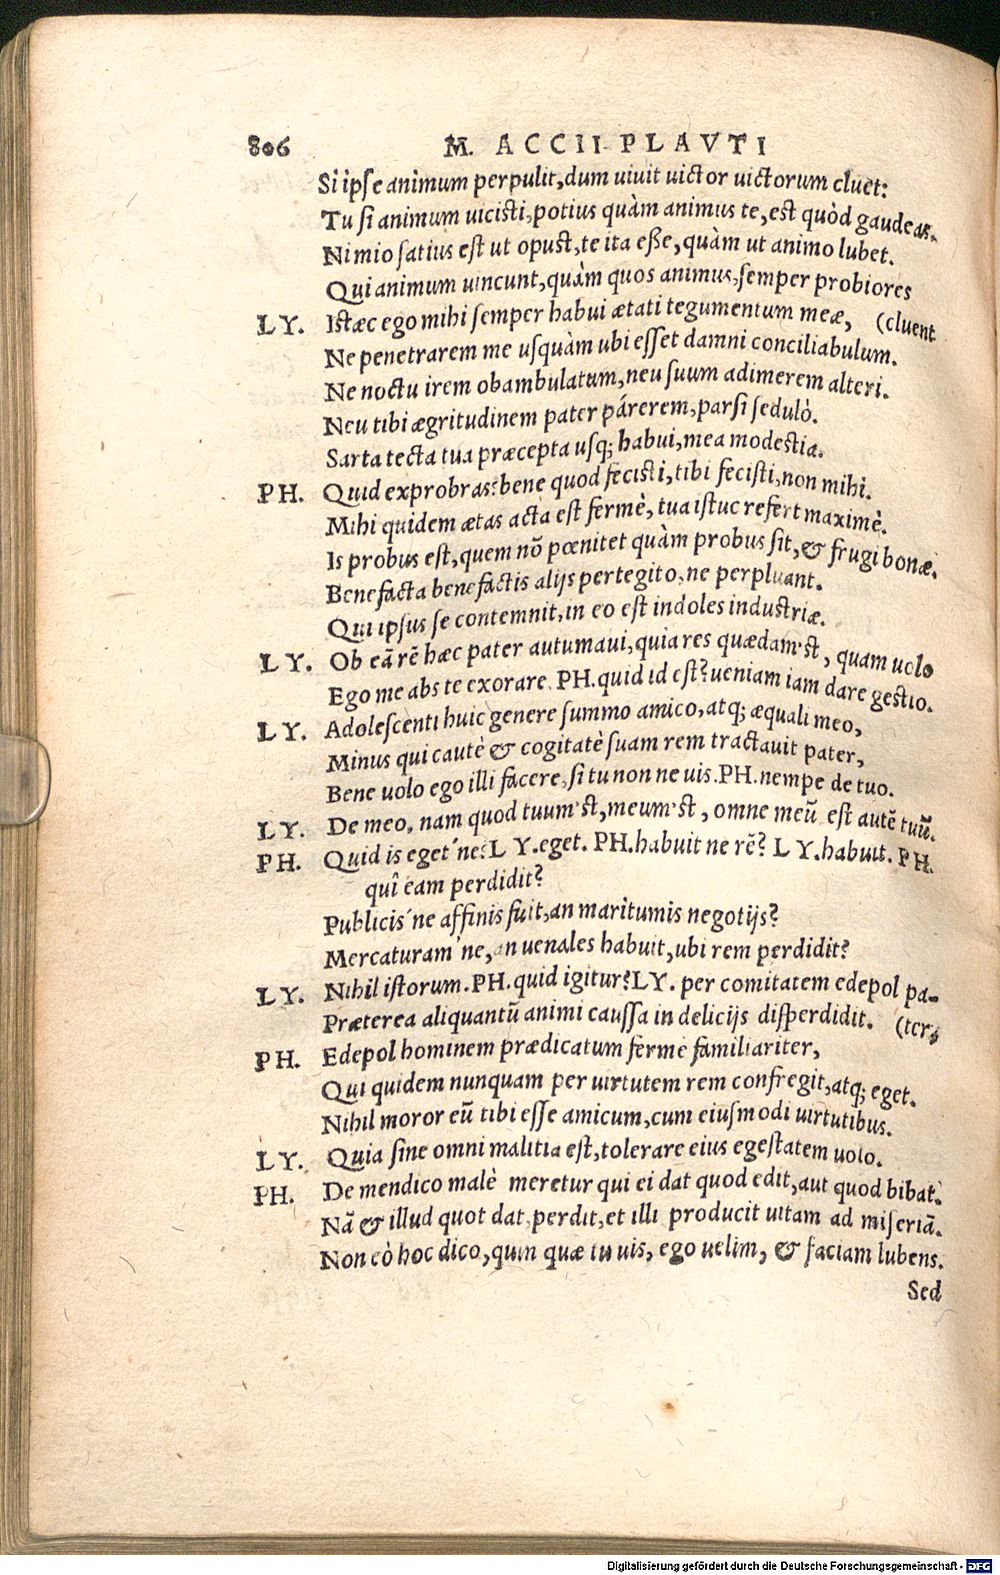 806 M. ACCII PLAVTI
Si ipse animum perpulit, dum uiuit uictor uictorum cluet:
Tu si animum uicisti, potius quàm animus te, est quòd gaudeas.
Nimio satius est ut opust, te ita esse, quàm ut animo lubet.
Qui animum uincunt, quàm quos animus, semper probiores
LY. Istæc ego mihi semper habui ætati tegumentum meæ, (cluent
Ne penetrarem me usquàm ubi esset damni conciliabulum.
Ne noctu irem obambulatum, neu suum adimerem alteri.
Neu tibi ægritudinem pater párerem, parsi sedulò.
Sarta tecta tua præcepta usq; habui, mea modestia.
PH. Quid exprobras? bene quod fecisti, tibi fecisti, non mihi.
Mihi quidem ætas acta est fermè, tua istuc refert maximè.
Is probus est, quem nõ pœnitet quàm probus sit, & frugi bonæ.
Benefacta benefactis alijs pertegito, ne perpluant.
Qui ipsus se contemnit, in eo est indoles industriæ.
LY. Ob eã rẽ hæc pater autumaui, quia res quædam'st, quam uolo
Ego me abs te exorare. PH. quid id est? ueniam iam dare gestio.
LY. Adolescenti huic genere summo amico, atq; æquali meo,
Minus qui cautè & cogitatè suam rem tractauit pater,
Bene uolo ego illi facere, si tu non ne uis. PH. nempe de tuo.
LY. De meo, nam quod tuum'st, meum'st, omne meũ est autẽ tuũ.
PH. Quid is eget'ne? LY. eget. PH. habuit ne rẽ? LY. habuit. PH.
quî eam perdidit?
Publicis'ne affinis fuit, an maritumis negotijs?
Mercaturam'ne, an uenales habuit, ubi rem perdidit?
LY. Nihil istorum. PH. quid igitur? LY. per comitatem edepol pa-
Præterea aliquantũ animi caussa in delicijs disperdidit. (ter,
PH. Edepol hominem prædicatum ferme familiariter,
Qui quidem nunquam per uirtutem rem confregit, atq; eget.
Nihil moror eũ tibi esse amicum, cum eiusmodi uirtutibus.
LY. Quia sine omni malitia est, tolerare eius egestatem uolo.
PH. De mendico malè meretur qui ei dat quod edit, aut quod bibat.
Nã & illud quot dat, perdit, et illi producit uitam ad miseriã.
Non eò hoc dico, quin quæ tu uis, ego uelim, & faciam lubens.
Sed
Digitalisierung gefördert durch die Deutsche Forschungsgemeinschaft - DFG